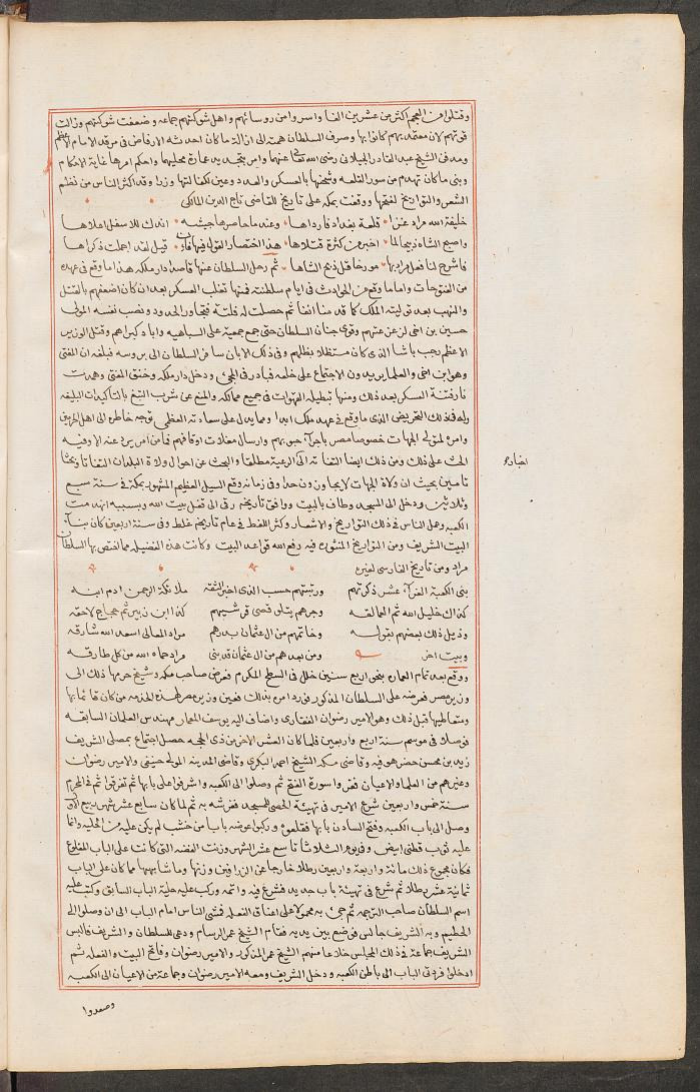 وقتلوا من العجم اكثر من عشرين الفا واسروا من روسائهم واهل شوكتهم جماعه وضعفت شوكتهم وزالت
قوتهم لان معتمد بهم كانوا بها وصرف السلطان همته الى ازالة ما كان احدثه الارفاض فى مرقد الامام الاعظم
ومدفن الشيخ عبد القادر الجيلانى رضى الله عنهما وامر بتجديد عمارة محليهما واحكم امرها غاية الاحكام
وبنى ما كان تهدم من سور القلعه وشحنها بالعسكر والعدد وعين لكفالتها وزرا وقد اكثر الناس من نظم
الشعر والتواريخ لفتحها ووقفت بمكه على تاريخ للقاضى تاج الدين المالكى
خليفة الله مراد غزا قلعة بغداد فارداها وعندما حاصرها جيشه اندك للاسفل اعلاها
واصبح الشاه ذبيحا لما اخبر من كثرة قتلاها هذا اختصار القول فيها فان قيل لقد اجملت ذكراها
فاشرح لنا فعل مراد بها مورخا قل ذبح الشاها ثم رحل السلطان عنها قاصدا دار ملكه هذا ما وقع فى عهده
من الفتوحات واما ما وقع من الحوادث فى ايام سلطنته فمنها تغلب العسكر بعد ان كان اضعفهم بالقتل
والنهب بعد توليته الملك كما قدمنا انفا ثم حصلت له فلتة فتجاوز الحدود ونصب نفسه المولى
حسين بن اخى لزعزعتهم وقوى جنان السلطان حتى جمع جمعية على السباهيه واباد كبراهم وقتل الوزير
الاعظم رجب باشا الذى كان مستظلا بظلهم وفى ذلك الابان سافر السلطان الى بروسه فبلغه ان المفتى
وهو ابن اخى والعلما يريدون الاجتماع على خلعه فبادر فى المجى ودخل دار ملكه وخنق المفتى وهمدت
نار فتنة العسكر بعد ذلك ومنها تبطيله القهوات فى جميع ممالكه والمنع عن شرب التبغ بالتاكيدات البليغه
وله فى ذلك التحريض الذى ما وقع فى عهد ملك ابدا ومما يدل على سعادته العظمى توجه خاطره الى اهل الحرمين
وامره لمتولى الجهات خصوصا مصر باجراء حبوبهم وارسال مغلات اوقافهم فما من امر يرد عنه الا وفيه
الحث على ذلك ومن ذلك ايضا التفاته الى الرعية مطلقا والبحث عن احوال ولاة البلدان التفاتا وبحثا
تامين بحيث ان ولاة الجهات لا يجاوزون حدا وفى زمانه وقع السيل العظيم المشهور بمكة فى سنة سبع
وثلاثين ودخل الى المسجد وطاف بالبيت ووافق تاريخه رقى الى قفل بيت الله وبسببه انهدمت
الكعبه وعمل الناس فى ذلك التواريخ والاشعار وكثر اللغط فى عام تاريخه غلط وفى سنة اربعين كان بناء
البيت الشريف ومن التواريخ المنثوره فيه رفع الله قواعد البيت وكانت هذه الفضيله مما اختص بها السلطان
مراد ومن تاريخ الفارسى لغيره
بنى الكعبة الغراء عشر ذكرتهم ورتبتهم حسب الذى اخبر الثقه ملائكة الرحمن ادم ابنه
كذاك خليل الله ثم العمالقه وجرهم يتلو قصى قريشهم كذا ابن زبير ثم حجاج لاحقه
وذيل ذلك بعضهم بقوله وخاتمهم من ال عثمان بدرهم مراد المعالى اسعد الله شارقه
وبيت اخر ومن بعدهم من ال عثمان قد بنى مراد حماه الله من كل طارقه
ووقع بعد تمام العماره بنحو اربع سنين خلل فى السطح المكرم فعرض صاحب مكه وشيخ حرمها ذلك الى
وزير مصر فعرضه على السلطان المذكور فورد امره بذلك فعين وزير مصر لهذه الخدمه من كان قائما بها
ومتعاطيها قبل ذلك وهو الامير رضوان الفقارى واضاف اليه يوسف المعمار مهندس العمارة السابقه
فوصلا فى موسم سنة اربع واربعين فلما كان العشر الاخر من ذى الحجه حصل اجتماع بمصلى الشريف
زيد بن محسن حضر هو فيه وقاضى مكه الشيخ احمد البكرى وقاضى المدينه المولى حنيفى والامير رضوان
وغيرهم من العلما والاعيان فقرا سورة الفتح ثم وصلوا الى الكعبه واشرفوا على بابها ثم تفرقوا ثم فى المحرم
سنة خمس واربعين شرع الامير فى تهيئة الحصى للمسجد ففرشه به ثم لما كان سابع عشر شهر ربيع الاول
وصل الى باب الكعبه وفتح السادن بابها فقلعوه وركبوا عوضه بابا من خشب لم يكن عليه من الحليه وانما
عليه ثوب قطنى ابيض وفى يوم الثلاثا تاسع عشر الشهر وزنت الفضه التى كانت على الباب المقلوع
فكان مجموع ذلك مائة واربعة واربعين رطلا خارجا عن الزرافين وزنها وما شابهها مما كان على الباب
ثمانية عشر رطلا ثم شرع فى تهيئة باب جديد فشرع فيه واتمه وركب عليه حلية الباب السابق وكتب عليه
اسم السلطان صاحب الترجمه ثم جى به محمولا على اعناق الفعله فمشى الناس امام الباب الى ان وصلوا الى
الحطيم وبه الشريف جالس فوضع بين يديه فقام الشيخ عمر الرسام ودعى للسلطان والشريف فالبس
الشريف جماعة فى ذلك المجلس خلعا منهم الشيخ عمر المذكور والامير رضوان وفاتح البيت والفعله ثم
ادخلوا فردتى الباب الى باطن الكعبه ودخل الشريف ومعه الامير رضوان وجماعة من الاعيان الى الكعبه
وصعدوا